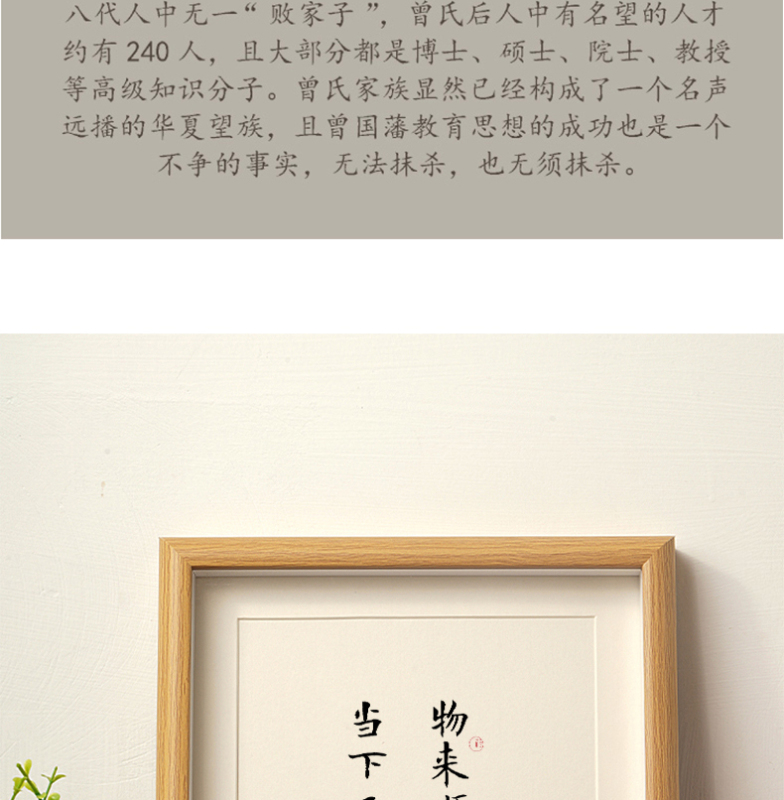 八代人中无一“败家子”，曾氏后人中有名望的人才
约有240人，且大部分都是博士、硕士、院士、教授
等高级知识分子。曾氏家族显然已经构成了一个名声
远播的华夏望族，且曾国藩教育思想的成功也是一个
不争的事实，无法抹杀，也无须抹杀。
物来
当下